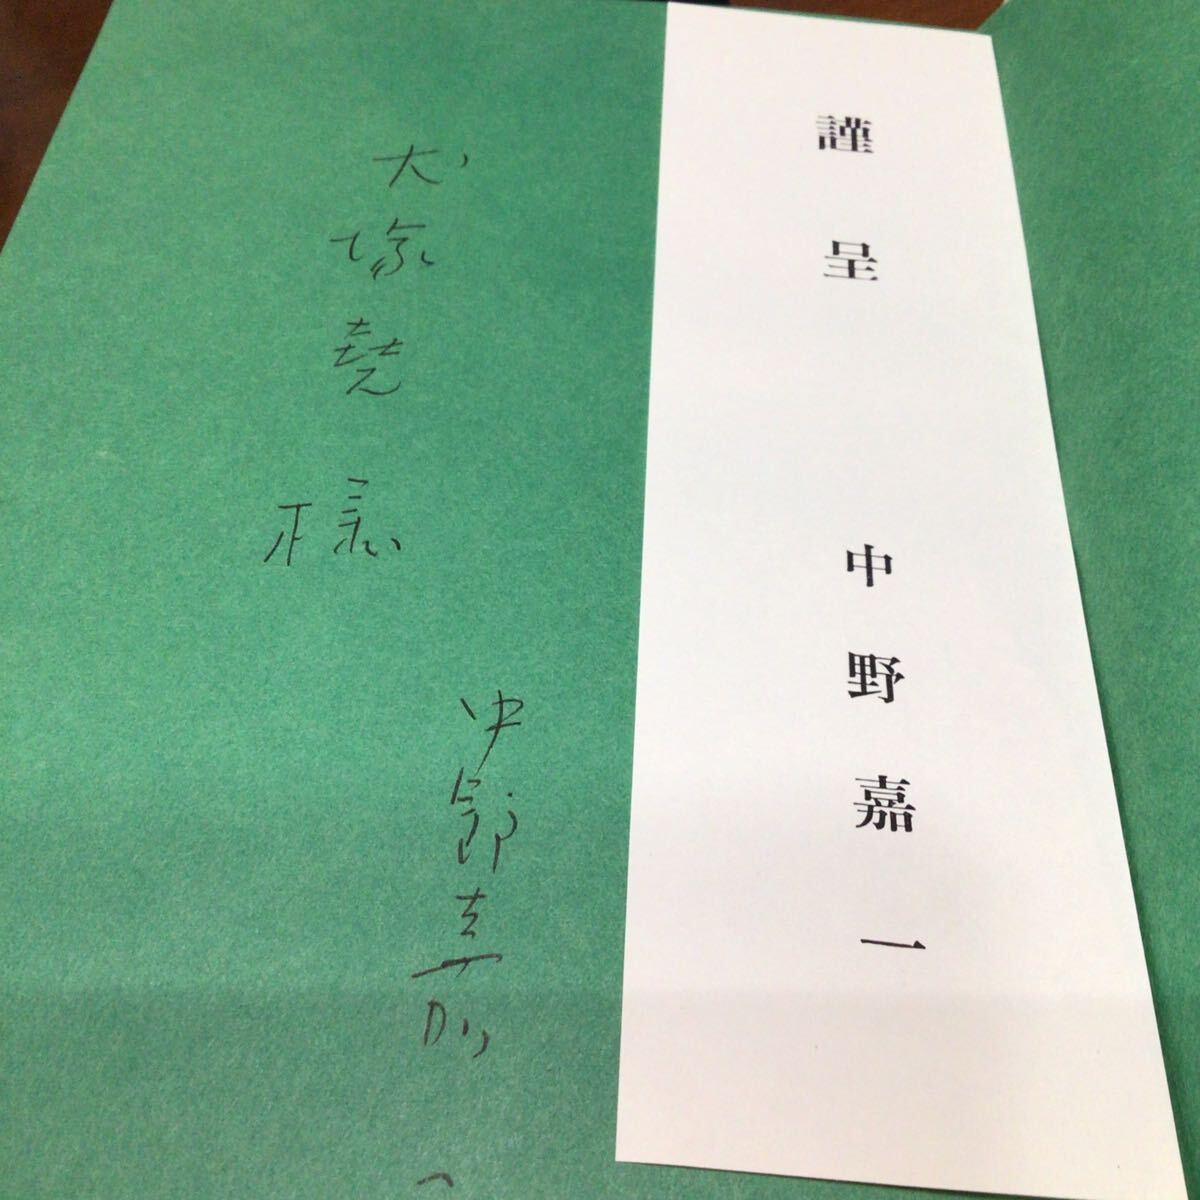 謹呈
中野嘉一
犬塚堯様
中野嘉一